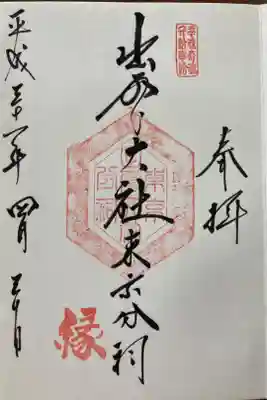 奉拝
出雲大社東京分祠
平成三十一年 四月 三十日
縁